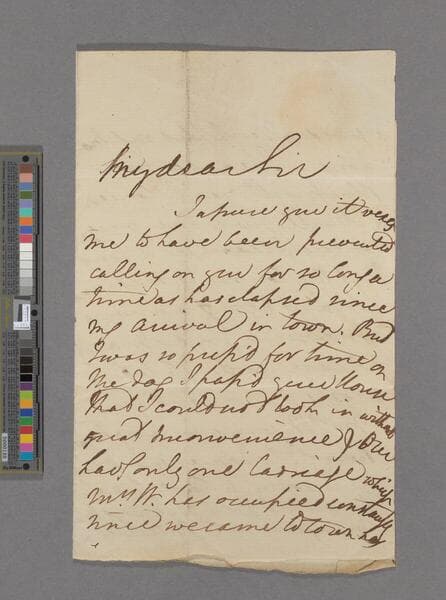 My dear Sir
I assure you it vexes
me to have been prevented
calling on you for so long a
time as has elapsed since
my arrival in town. But
I was so press'd for time on
the day I pass'd your House
that I could not look in without
great inconvenience & our
have only one Carriage which
Mrs W. has occupied constantly
since we came to town has